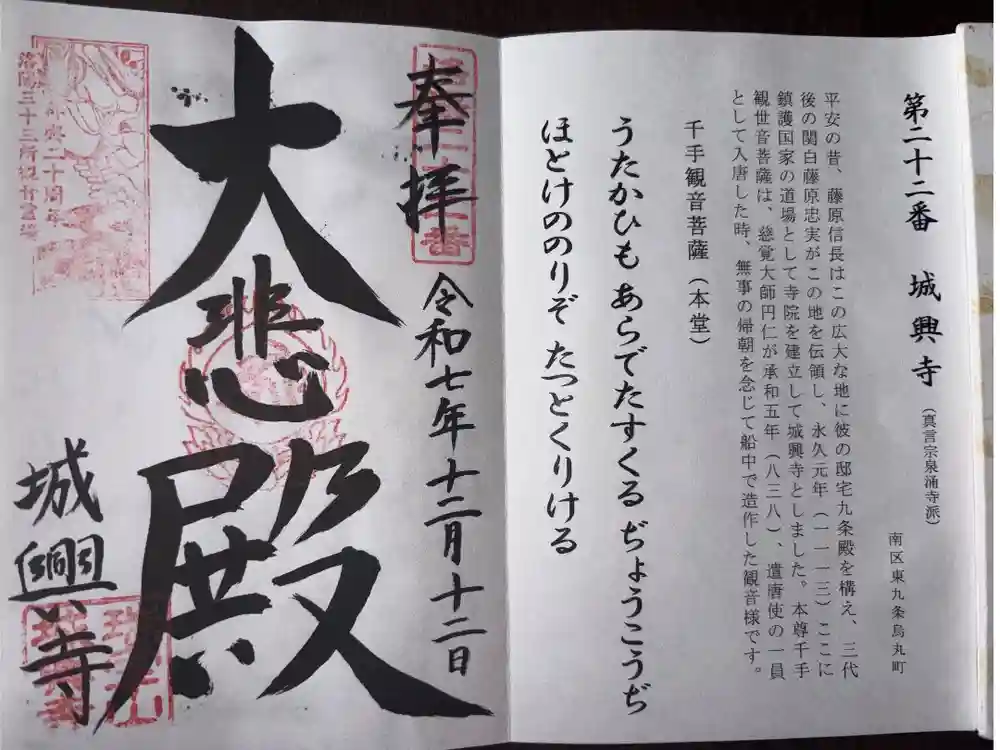 第二十二番 城興寺 (真言宗泉涌寺派)
南区東九条烏丸町
平安の昔、藤原信長はこの広大な地に彼の邸宅九条殿を構え、三代
後の関白藤原忠実がこの地を伝領し、永久元年(一一一三)ここに
鎮護国家の道場として寺院を建立して城興寺としました。本尊千手
観世音菩薩は、慈覚大師円仁が承和五年(八三八)、遣唐使の一員
として入唐した時、無事の帰朝を念じて船中で造作した観音様です。
千手観音菩薩(本堂)
うたかひも あらでたすくる ぢょうこうぢ
ほとけののりぞ たつとくりける
奉拝
令和七年十二月十二日
大悲殿
城興寺
再興二十周年
洛陽三十三所観音霊場